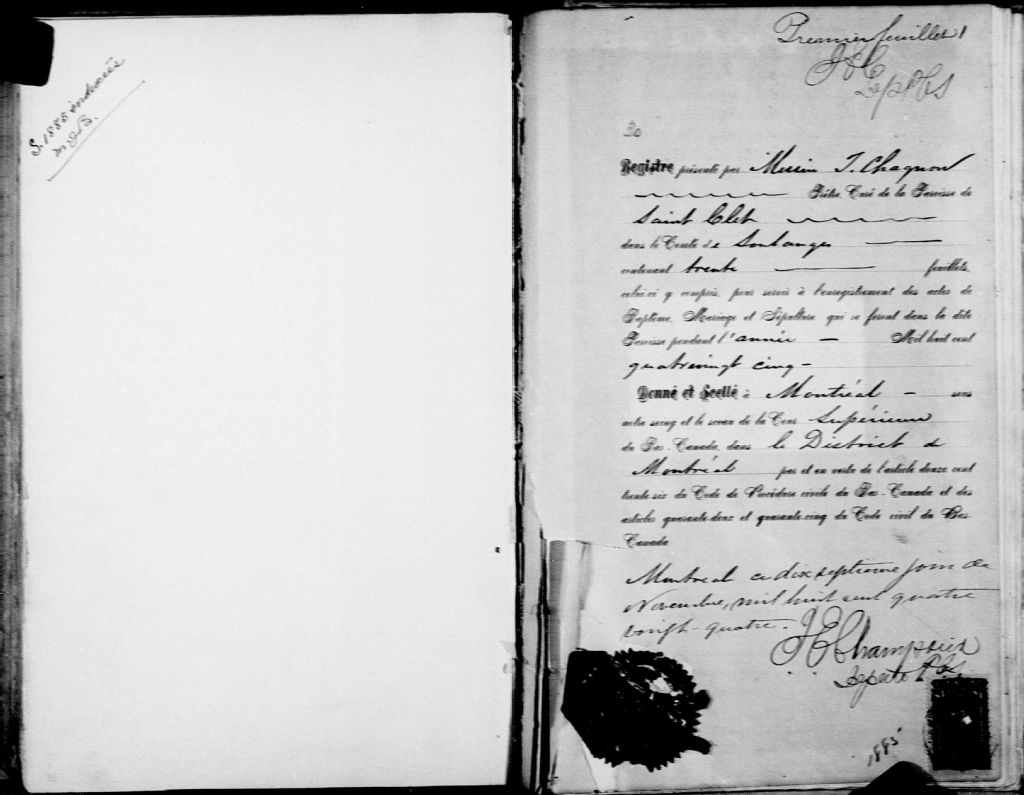 S. 1885
Premier feuillet 1
30
Registre présenté par Messire J. Chagnon
Prêtre, Curé de la Paroisse de
Saint Clet
dans le Comté de Soulanges
contenant trente feuillets,
celui-ci y compris, pour servir à l'enregistrement des actes de
Baptême, Mariage et Sépulture qui se feront dans la dite
Paroisse pendant l'année Mil huit cent
quatrevingt cinq -
Donné et Scellé à Montréal - sous
notre seing et le sceau de la Cour Supérieure
du Bas-Canada, dans le District de
Montréal par et en vertu de l'article douze cent
trente-six du Code de Procédure civile du Bas-Canada et des
articles quarante-deux et quarante-cinq du Code civil du Bas-
Canada
Montreal ce dixseptieme jour de
Novembre, mil huit cent quatre
vingt-quatre.
Députe P.C.S.
1885